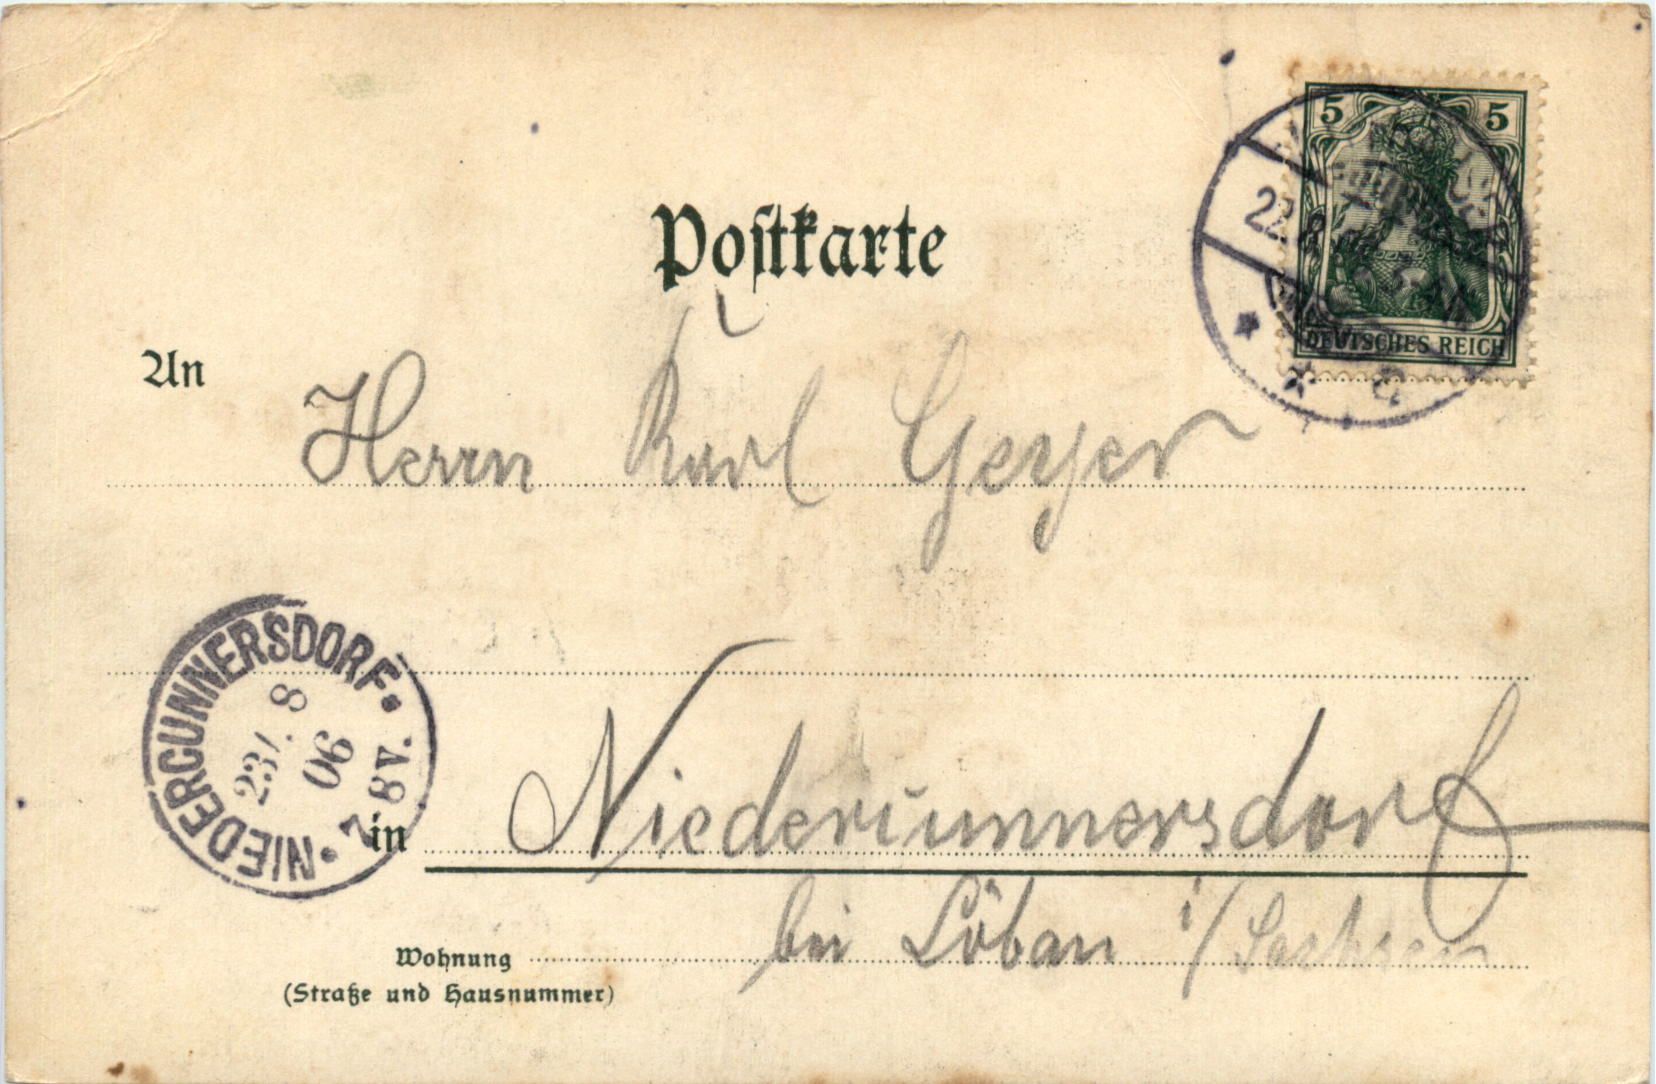 Postkarte
5 5
DEUTSCHES REICH
22. 8
An Herrn Karl Geyer
NIEDERCUNNERSDORF.
23/. 8
06
7-8V.
in Niedercunnersdorf
bei Löbau i/Sachsen
Wohnung
(Straße und Hausnummer)